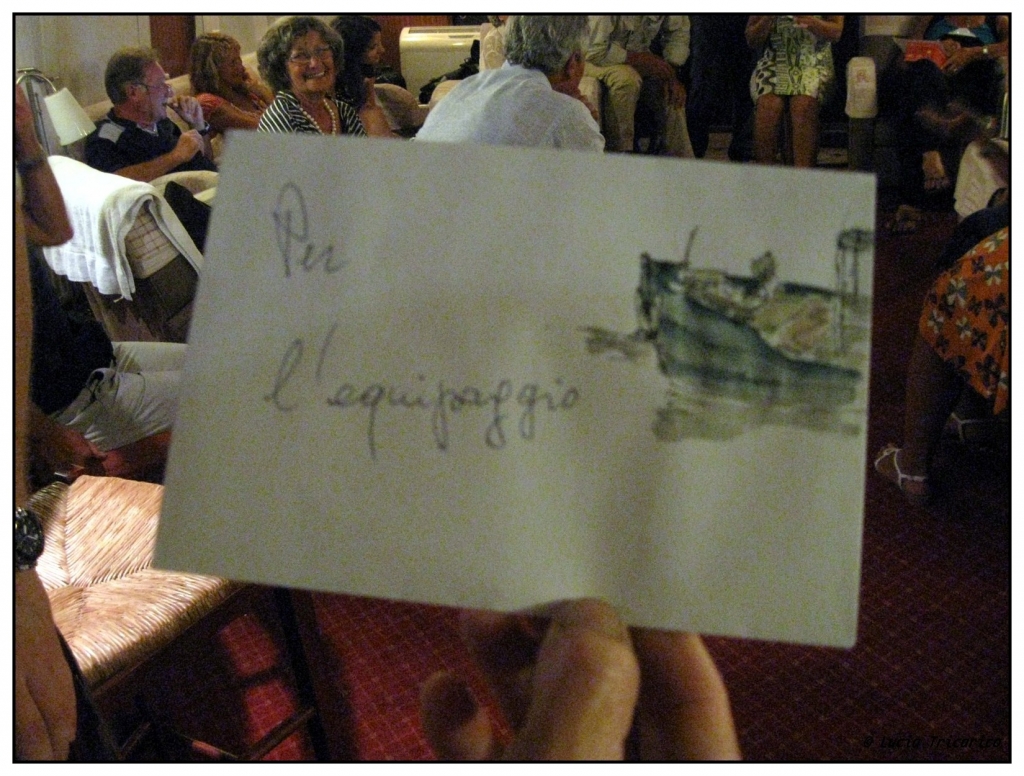 Per
l'equipaggio
© Lucia Tricarico